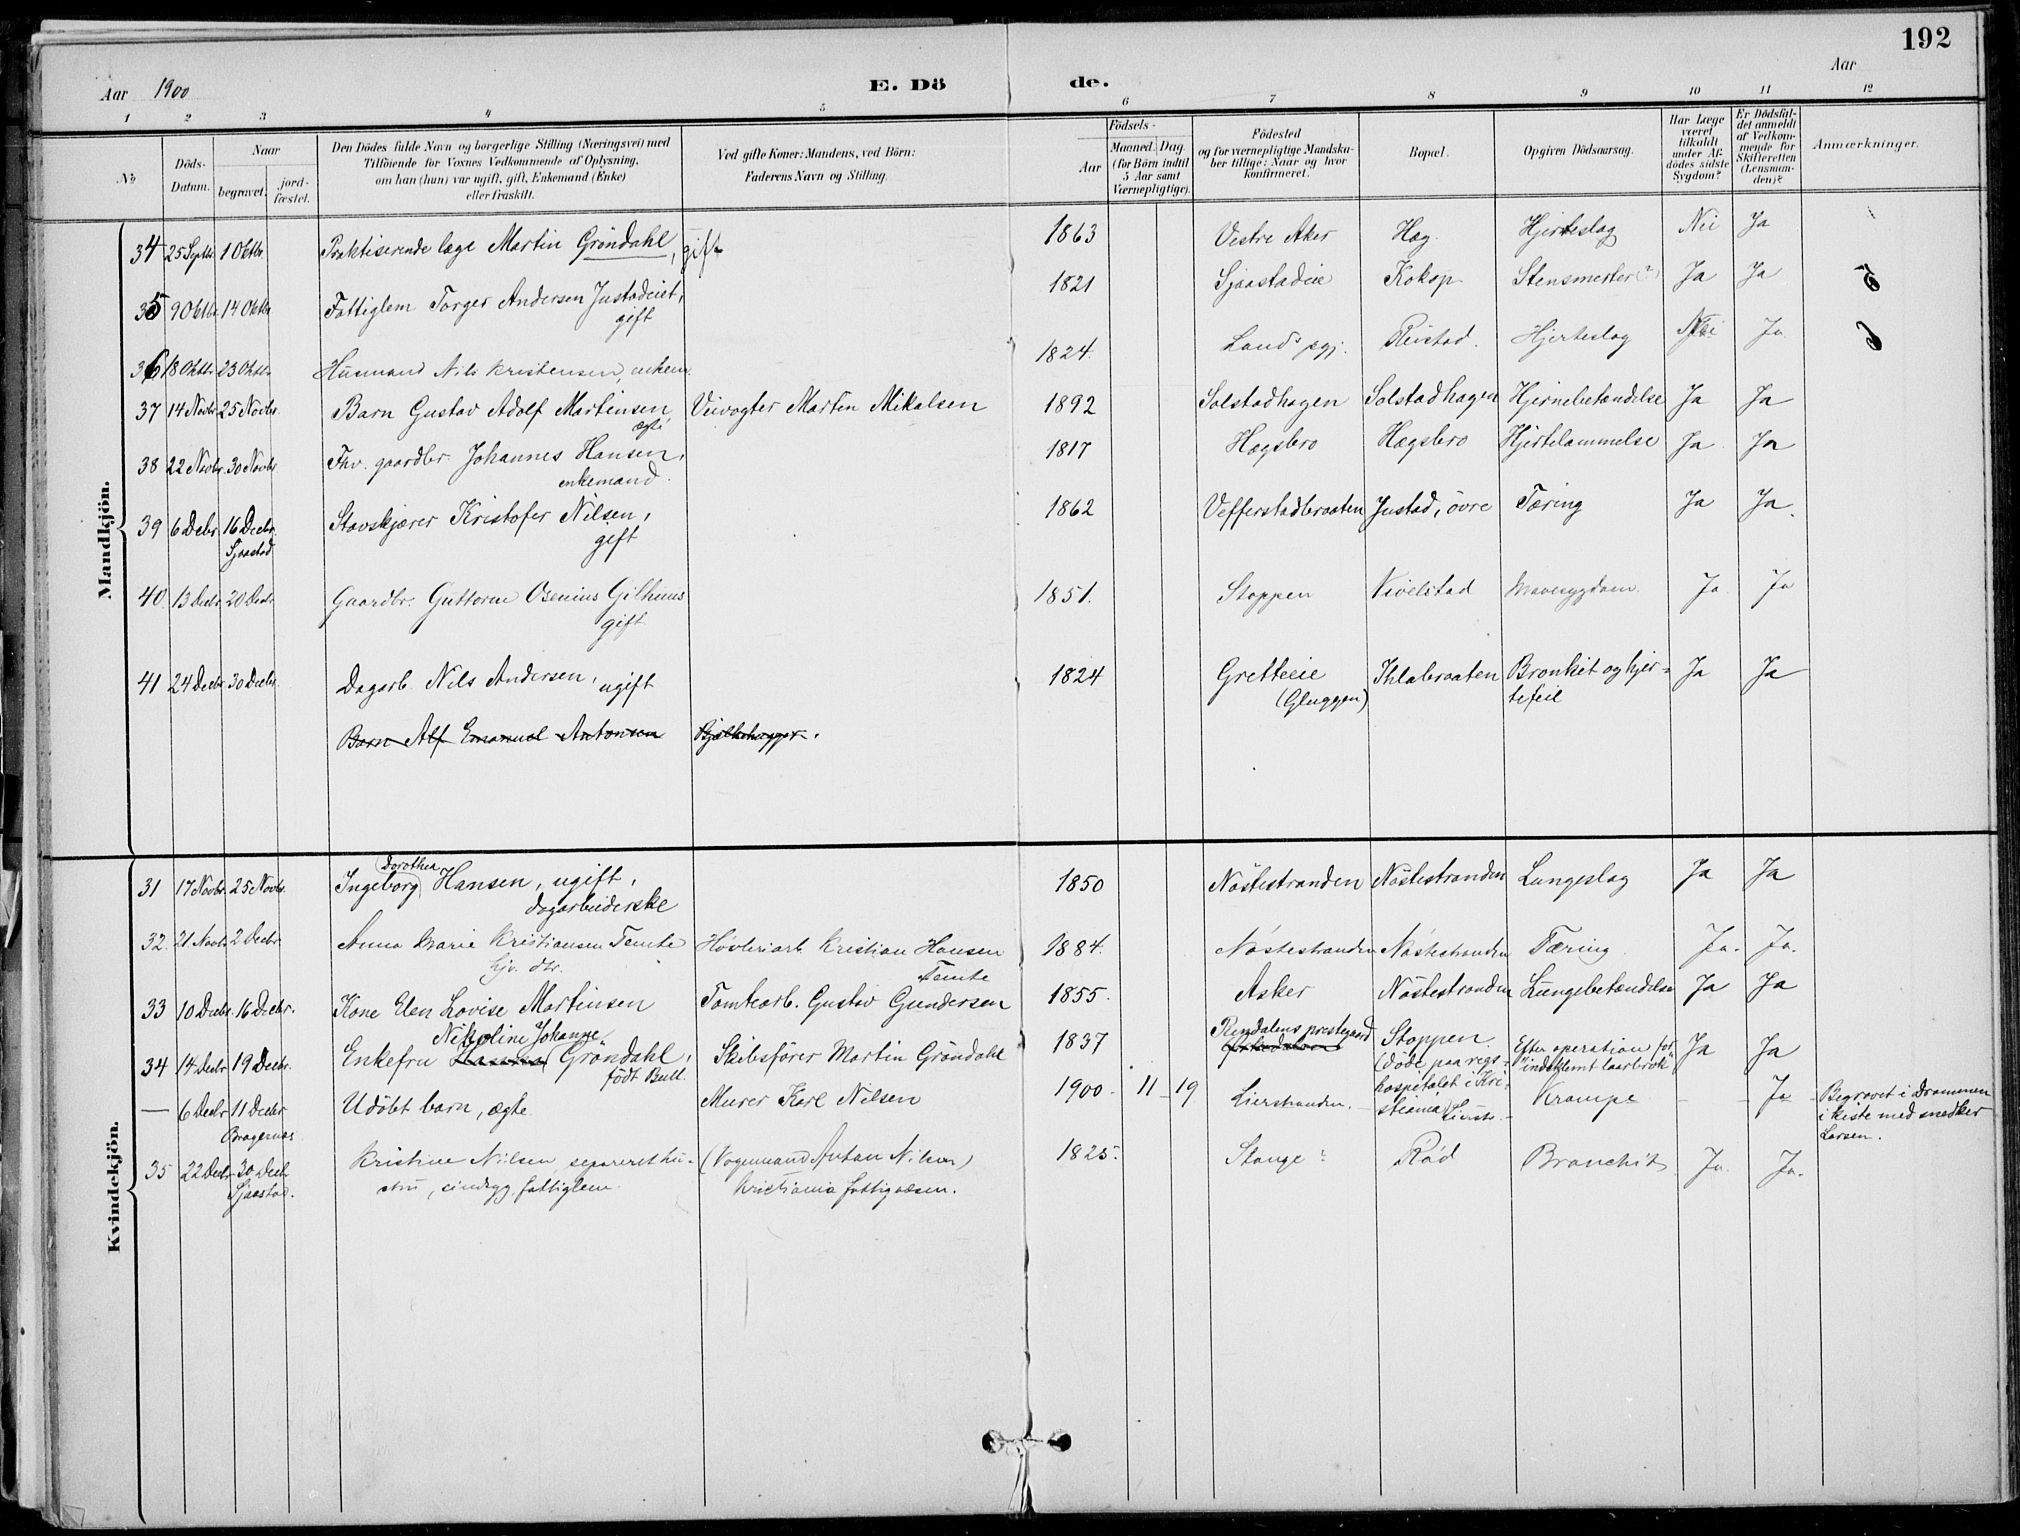 192
Aar 1900
E. Dö de.
Aar
1 2 3 4 5 6 7 8 9 10 11 12
No
Döds-Datum.
Naar
begravet.
jord-fæstet.
Den Dödes fulde Navn og borgerlige Stilling (Næringsvei) med
Tilföiende for Voxnes Vedkommende af Oplysning,
om han (hun) var ugift, gift, Enkemand (Enke)
eller fraskilt.
Ved gifte Koner: Mandens, ved Börn:
Faderens Navn og Stilling.
Födsels-
Aar
Maaned. Dag.
(for Börn indtil
5 Aar samt
Værnepligtige).
Födested
og for værnepligtige Mandska-
ber tillige: Naar og hvor
konfirmeret.
Bopæl.
Opgiven Dödsaarsag.
Har Læge
været
tilkaldt
under Af-
dödes sidste
Sygdom?
Er Dödsfal-
det anmeldt
af Vedkom-
mende for
Skifteretten
(Lensman-
den)?
Anmærkninger.
Mandkjön.
34 25 Septbr. 1 Oktbr. Praktiserende læge Martin Gröndahl, gift 1863 Vestre Aker Hæg. Hjerteslag Nei Ja
35 9 Oktbr. 14 Oktbr Fattiglem Torger Andersen Justadeiet, 1821 Sjaastadeie Kokop Stensmerter (?) Ja Ja
gift
36 18 Oktbr 23 Oktbr Husmand Nils Kristensen, enkem. 1824. Lands pgj. Reistad. Hjerteslag Nei Ja
37 14 Novbr. 25 Novbr. Barn Gustav Adolf Martinsen, Veivogter Martin Mikalsen 1892 Solstadhagen Solstadhagen Hjernebetændelse Ja Ja
ægte
38 22 Novbr. 30 Novbr Fhv. gaardbr. Johannes Hansen, 1817 Hægsbro Hægsbro Hjertelammelse Ja Ja
enkemand.
39 6 Decbr. 16 Decbr. Stavskjærer Kristofer Nilsen, 1862 Vefferstadbraaten Justad, övre Tæring Ja Ja.
Sjaastad gift
40. 13 Decbr 20 Decbr Gaardbr. Guttorm Osenius Gilhuus 1851. Stoppen Kivelstad Mavesygdom. Ja. Ja
gift
41 24 Decbr. 30 Decbr. Dagarb. Nils Andersen, ugift 1824 Gretteeie Ihlebraaten Bronkit og hjer- Ja Ja
(Gluggen) tefeil
Barn Alf Emanuel Antonsen Bjelkehugger.
Kvindekjön.
Dorothea
31 17 Novbr. 25 Novbr. Ingeborg Hansen, ugift, 1850 Nöstestranden Nöstestranden Lungeslag Ja Ja
dagarbeiderske
32. 21 Novbr 2 Decbr. Anna Marie Kristiansen Temte Hövleriarb. Kristian Hansen 1884. Nöstestranden Nöstestranden Tæring Ja. Ja.
hjv. dtr. Temte
33 10 Decbr. 16 Decbr. Kone Elen Lovise Martinsen Tomtearb. Gustav Gundersen 1855. Asker Nöstestranden Lungebetændelse Ja Ja
Nikoline Johanne Rendalens prestegaard
34 14 Decbr 19 Decbr. Enkefru Gröndahl, Skibsförer Martin Gröndahl 1837 Stoppen. Efter operation for Ja Ja
födt Bull. (döde paa rigs- "indeklemt laarbrok"
hospitalet i Kri-
stiania)
— 6 Decbr 11 Decbr Udöbt barn, ægte Murer Karl Nilsen 1900. 11 19 Lierstranden. Lierstr. Krampe - Ja Begravet i Drammen
Bragernæs i kiste med snedker
Larsen.
35 22 Decbr 30 Decbr Kristine Nilsen separeret hu- (Vognmand Anton Nilsen) 1825. Stange? Röd Bronchit Ja. Ja.
Sjaastad. stru, sindsyg fattiglem. Kristiania fattigvæsen.